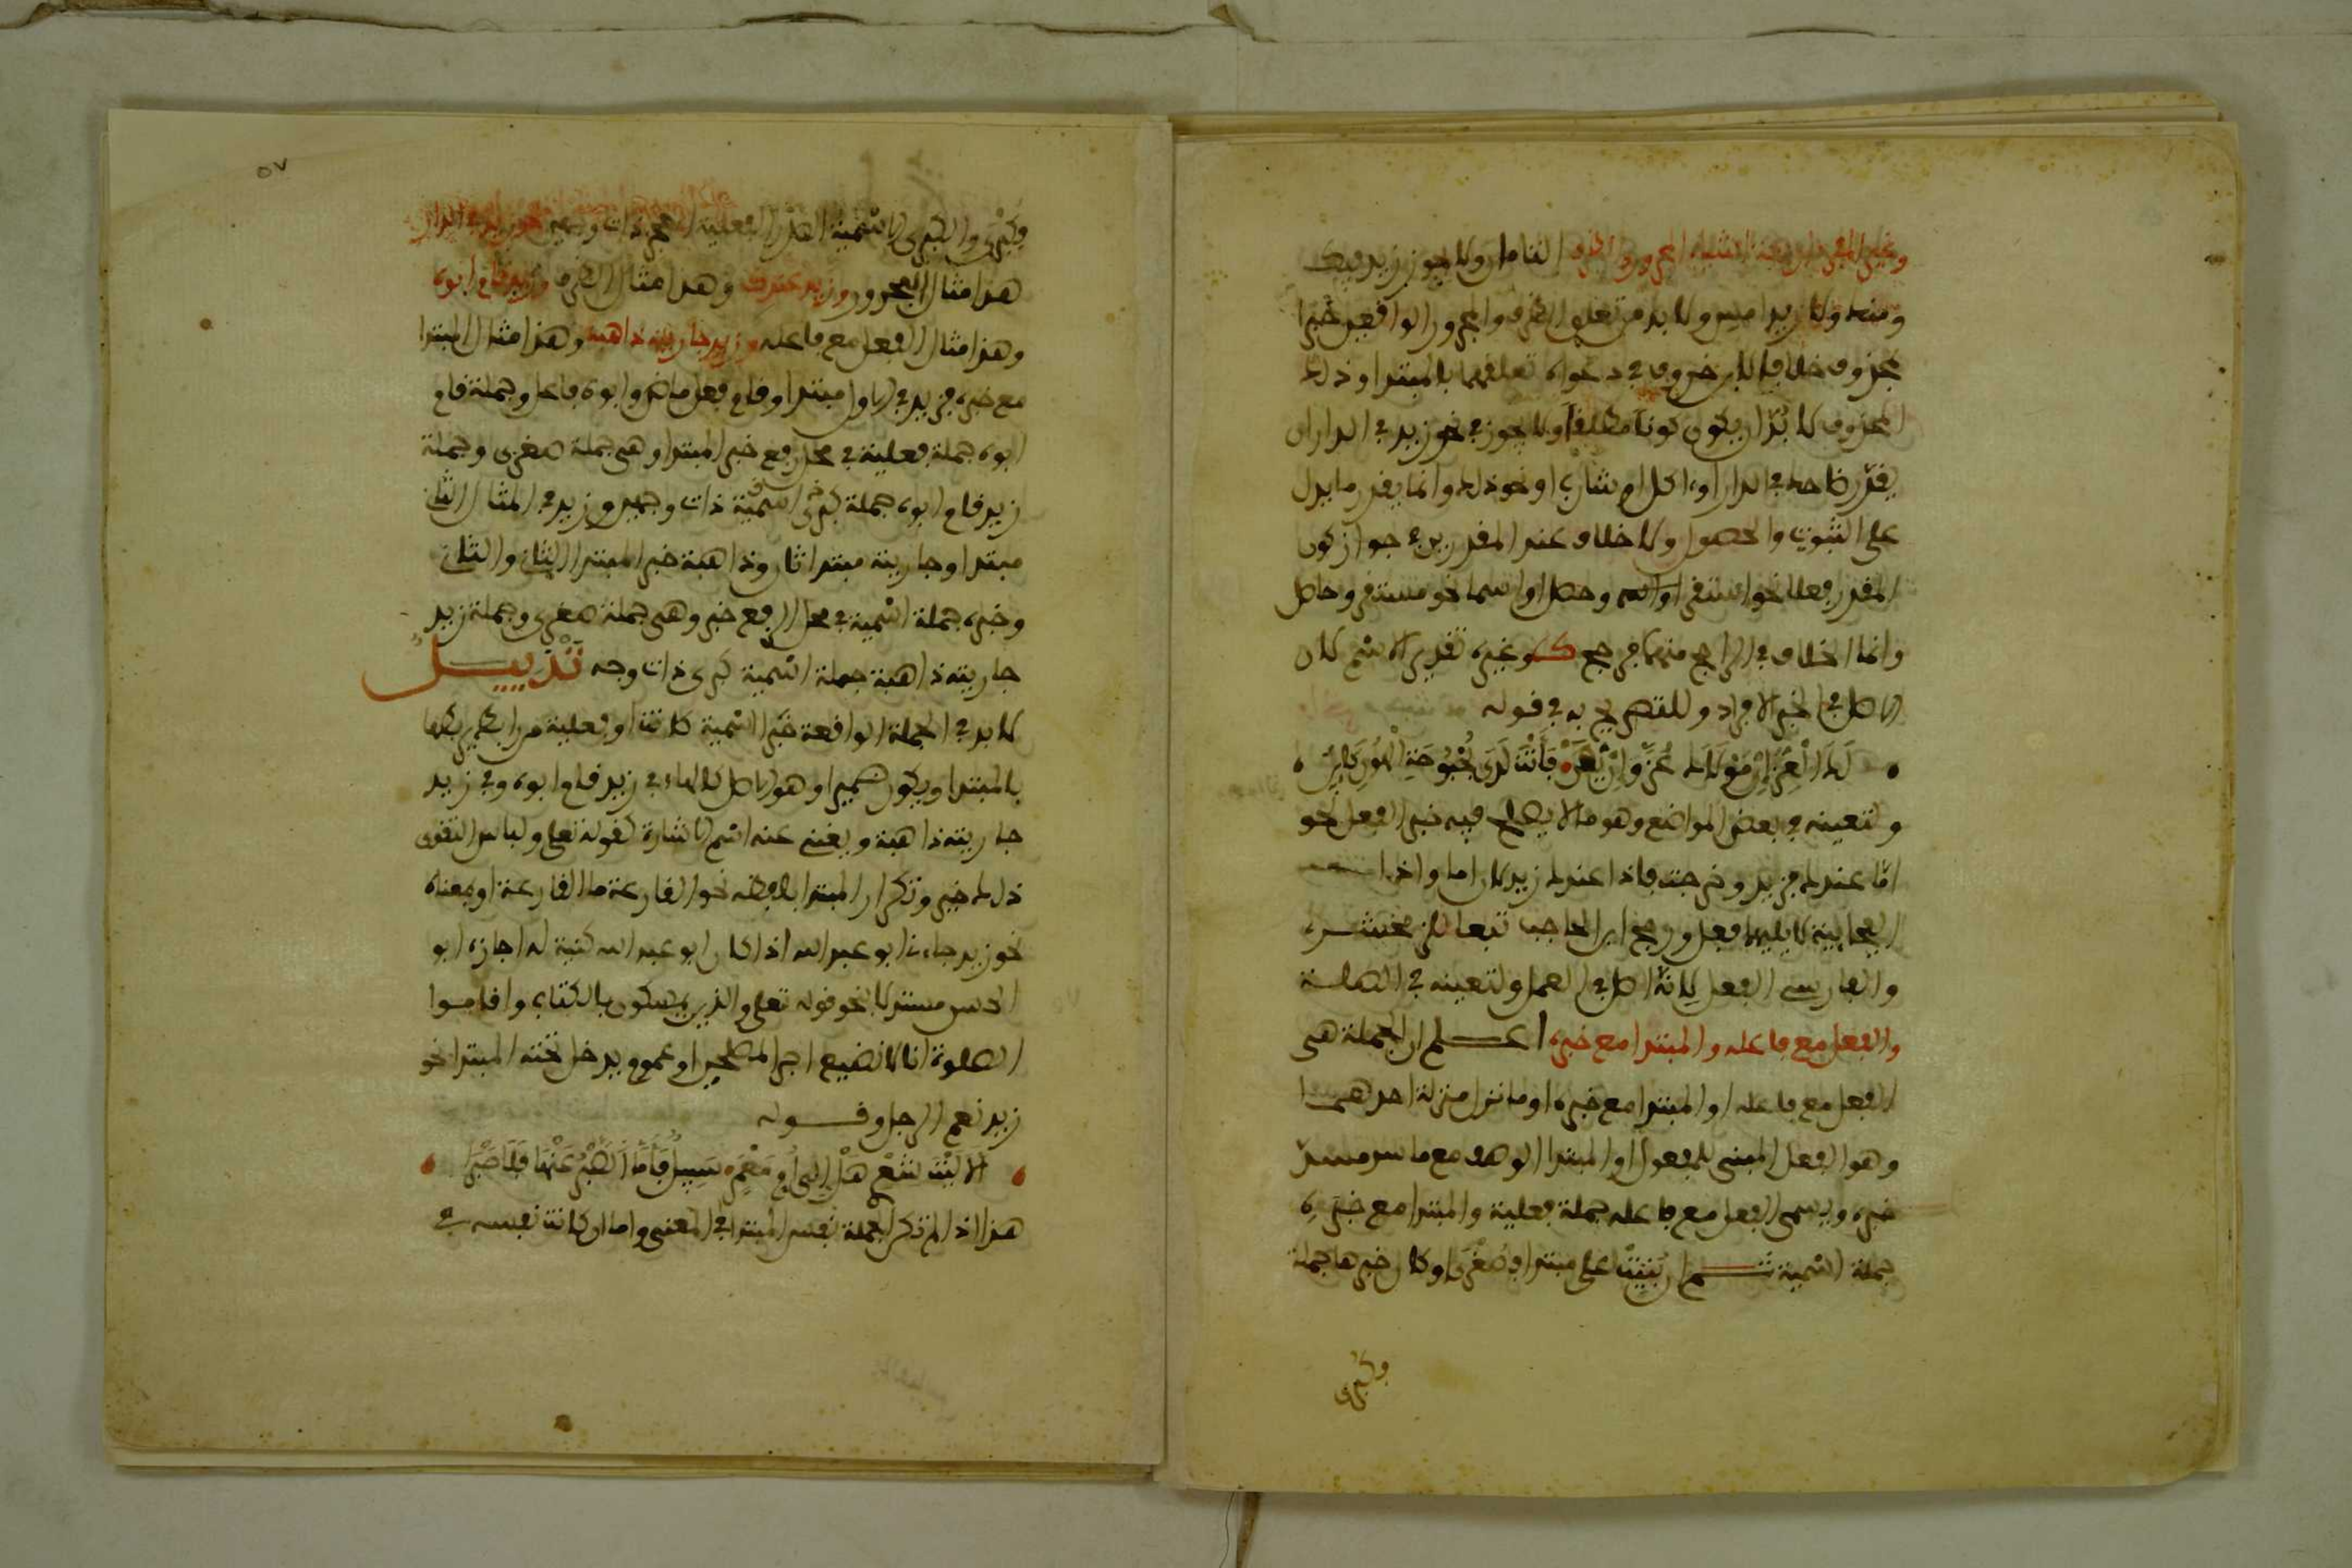 وغير المفرد اربعة اشياء المجرور والظرف التامان ولا يجوز زيد فيك
ومنه ولا زيد امس ولا بد من تعلق الظرف والمجرور الواقعين خبرا
بمحذوف خلافا لابن خروف في دعواه تعلقهما بالمبتدا وذلك
المحذوف لا بُدّ ان يكون كونا مطلقا ولا يجوز في نحو زيد في الدار ان
يقدّر ضاحك في الدار او اكل او شارب او نحو ذلك وانما يقدر ما يدل
على الثبوت والحصول ولا خلاف عند المقدرين في جواز كون
المقدر فعلا نحو استقر او وحصل او اسما نحو مستقر وحاصل
وانما الخلاف في الراجح منهما فرجح ك وغيره تقدير الاسم لان
الاصل في الخبر الافراد وللتصريح به في قوله
لَكَ الْعِزُّ إِنْ مَوْلَاكَ عَزَّ وَإِنْ يَهُنْ فَأَنْتَ لَدَى بُحْبُوحَةِ الْهُونِ كَائِنُ
ولتعينه في بعض المواضع وهو ما لا يصلح فيه خبر الفعل نحو
امّا عندك فزيد وخرجت فاذا عندك زيد لان اما واذا
الفجائية لا يليها فعل ورجح ابن الحاجب تبعا للزمخشري
والفارسي الفعل لِأنّه الاصل في العمل ولتعينه في الصلة
والفعل مع فاعله والمبتدا مع خبره اعلم ان الجملة هي
الفعل مع فاعله او المبتدا مع خبره او ما نزل منزلة احدهما
وهو الفعل المبني للمفعول او المبتدا الوصف مع ما سد مسدّ
خبره ويسمى الفعل مع فاعله جملة فعلية والمبتدا مع خبره
جملة اسمية ثم ان بُنِيَتْ على مبتدا فصُغْرَى او كان خبرها جملة
وكبرى
٥٧
فكُبْرَى والكبرى الاسمية الصّدْر الفعلية العجز ذات وجهين نحو زيد في الدار
هذا مثال المجرور وزيد عندك وهذا مثال الظرف وزيد قام ابوه
وهذا مثال الفعل مع فاعله وزيد جاريته ذاهبة وهذا مثال المبتدا
مع خبره فزيد في الاول مبتدا وقام فعل ماض وابوه فاعل وجملة قام
ابوه جملة فعلية في محل رفع خبر المبتدا وهي جملة صغرى وجملة
زيد قام ابوه جملة كبرى اسمية ذات وجهين وزيد في المثال الثاني
مبتدا وجاريته مبتدا ثان وذاهبة خبر المبتدا الثاني والثاني
وخبره جملة اسمية في محل الرفع خبر وهي جملة صغرى وجملة زيد
جاريته ذاهبة جملة اسمية كبرى ذات وجه تَذْيِيلٌ
لا بد في الجملة الواقعة خبرا اسمية كانت او فعلية من رابط يربطها
بالمبتدا ويكون ضميرا وهو الاصل كالهاء في زيد قام ابوه وفي زيد
جاريته ذاهبة ويغني عنه اسم الاشارة كقوله تعلى ولباس التقوى
ذلك خير وتكرار المبتدا بلفظه نحو القارعة ما القارعة او بمعناه
نحو زيد جاءني ابو عبد الله اذا كان ابو عبد الله كنية له اجازه ابو
الحسن مستدلا بنحو قوله تعلى والذين يمسكون بالكتاب واقاموا
الصلوة انا لا نضيع اجر المصلحين او عموم يدخل تحته المبتدا نحو
زيد نعم الرجل وقوله
الا لَيْتَ شِعْرِي هَلْ إلى أُمِّ مَعْمَرٍ سَبِيلٌ فَأَمَّا الصَّبْرُ عَنْهَا فَلَا صَبْرَا
هذا اذا لم تكن الجملة نفس المبتدا في المعنى واما ان كانت نفسه في